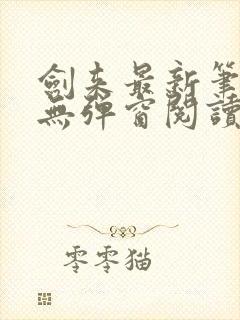 劍来最新筆
無彈窗閱讀
零零猫